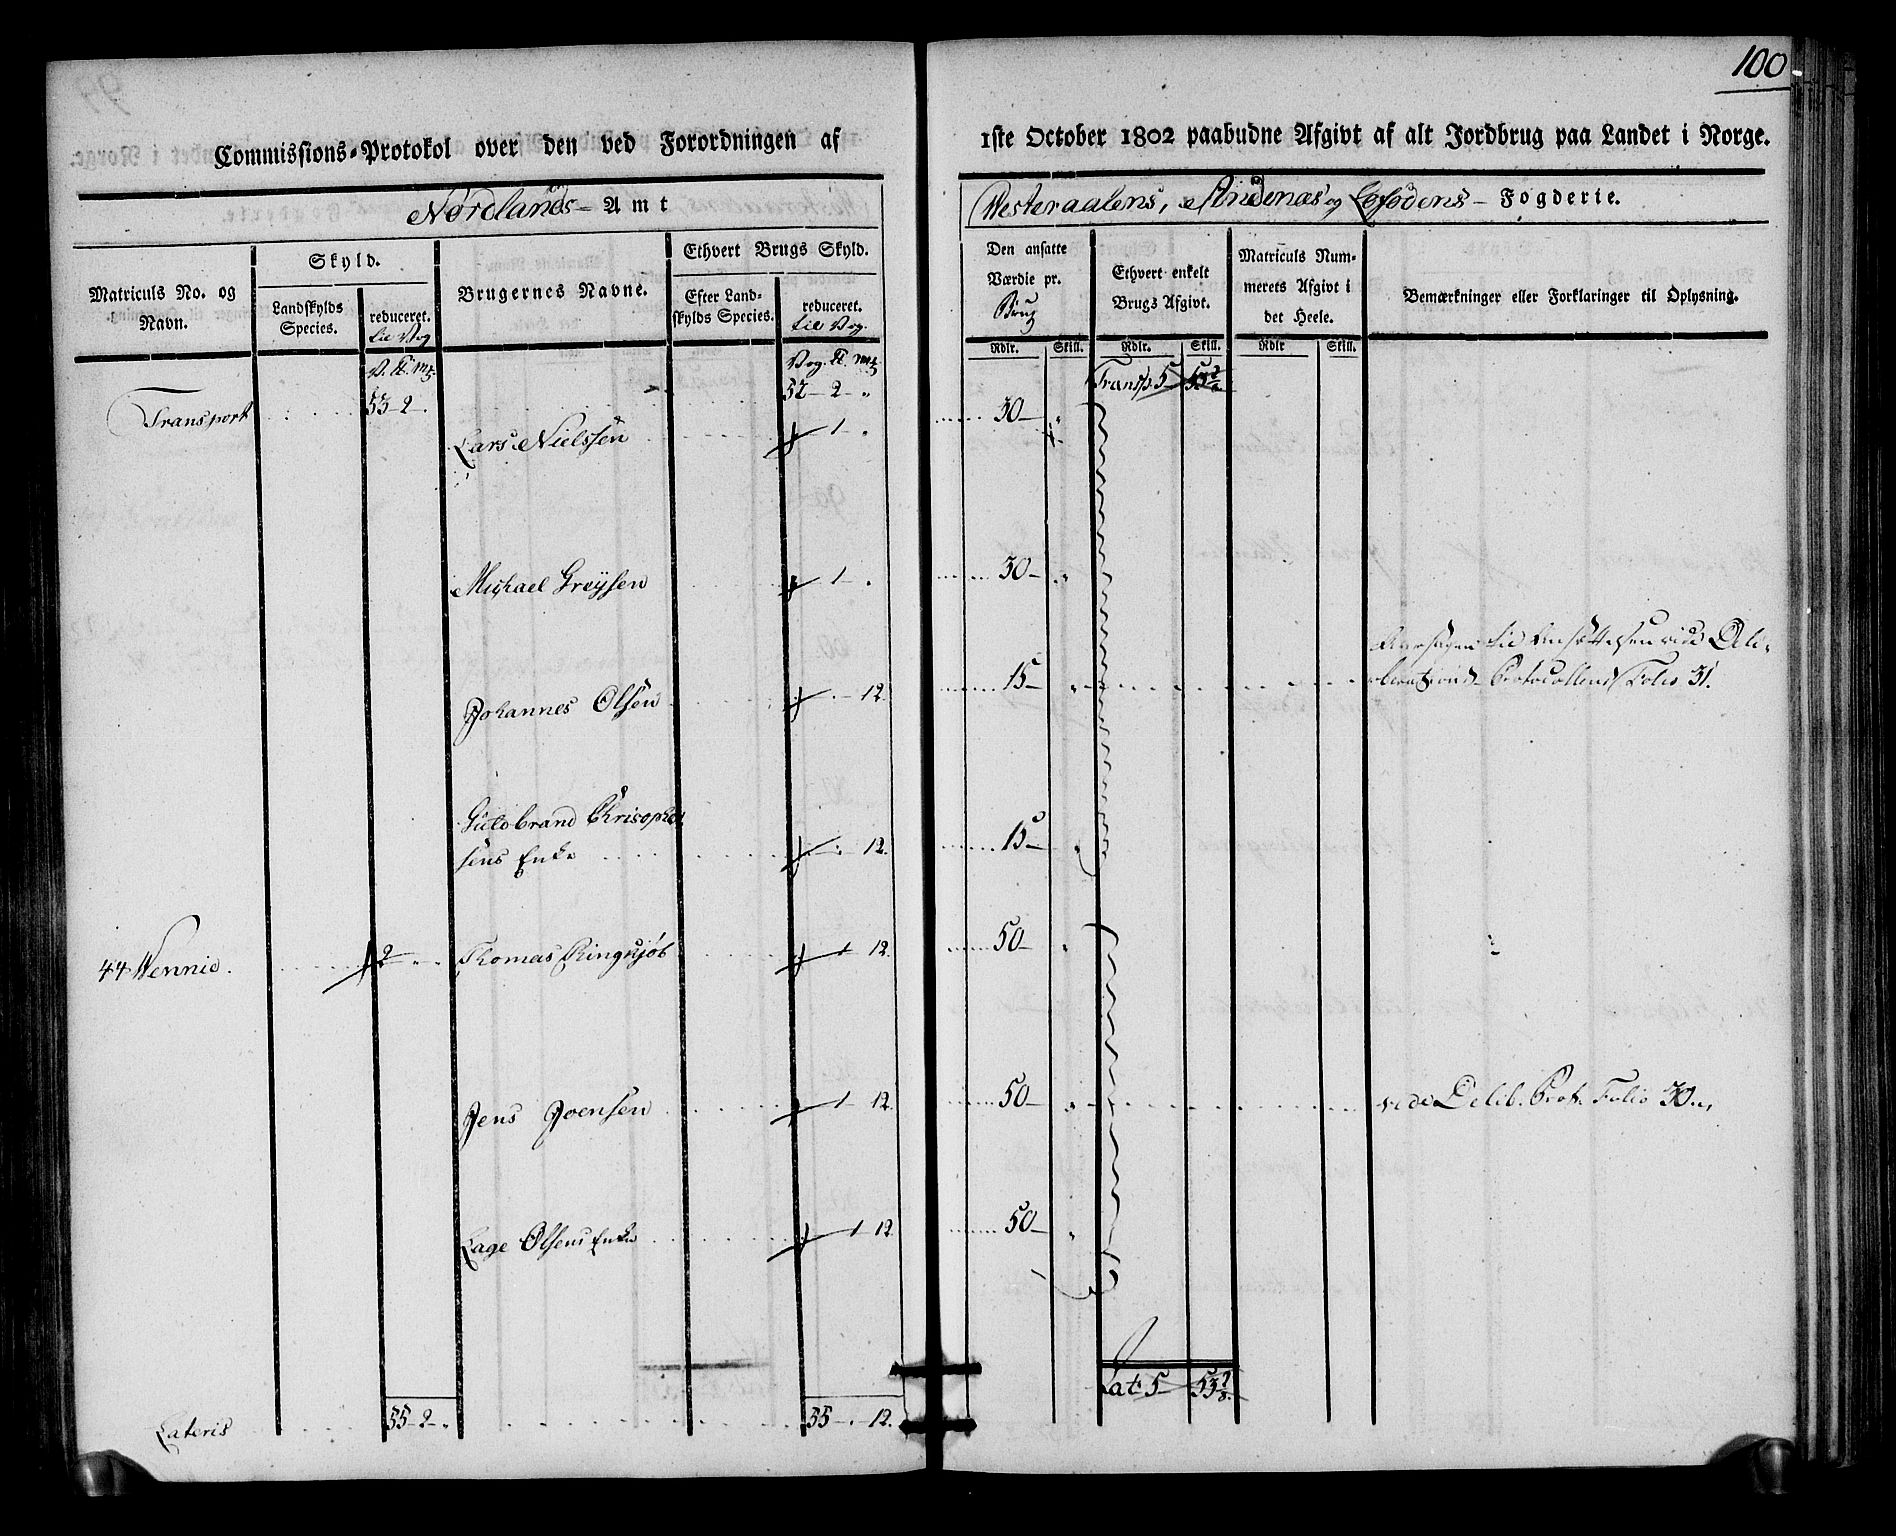 100
Commissions-Protokol over den ved Forordningen af
1ste October 1802 paabudne Afgivt af alt Jordbrug paa Landet i Norge.
Nordlands - Amt
Westeraalens, Andenæs og Lofodens - Fogderie.
Matriculs No. og Navn.
Skyld.
Landskylds Species.
reduceret. til Vog
Brugernes Navne.
Ethvert Brugs Skyld.
Efter Landskylds Species.
reduceret. til Vog.
Den ansatte Værdie pr. Brug
Ethvert enkelt Brugs Afgivt.
Matriculs Nummerets Afgivt i det Heele.
Bemærkninger eller Forklaringer til Oplysning.
Rdlr. Skill. Rdlr. Skill. Rdlr Skill.
Transport 53 - 2 . 52 - 2 - " Transp. 5
Lars Nielssen 1 - " 30 - "
Michael Greÿsen 1 - " 30 - "
Johannes Olsen " - 12 15 - " til Ansættelsen vide Deli-
berations Protocollens Folio 31.
Guldbrand Chrisophe
sens Enke " 12. 15 - "
44 Wennie. 2 - " Thomas Ringkjøb 1 12. 50 - "
Jens Joensen 1 - 12. 50 - " vide Delib. Prot. Folio 30
Lage Olsens Enke 1 12 50 - "
Lat: 5
Lateris 55 - 2 - " 55 - " - 12.